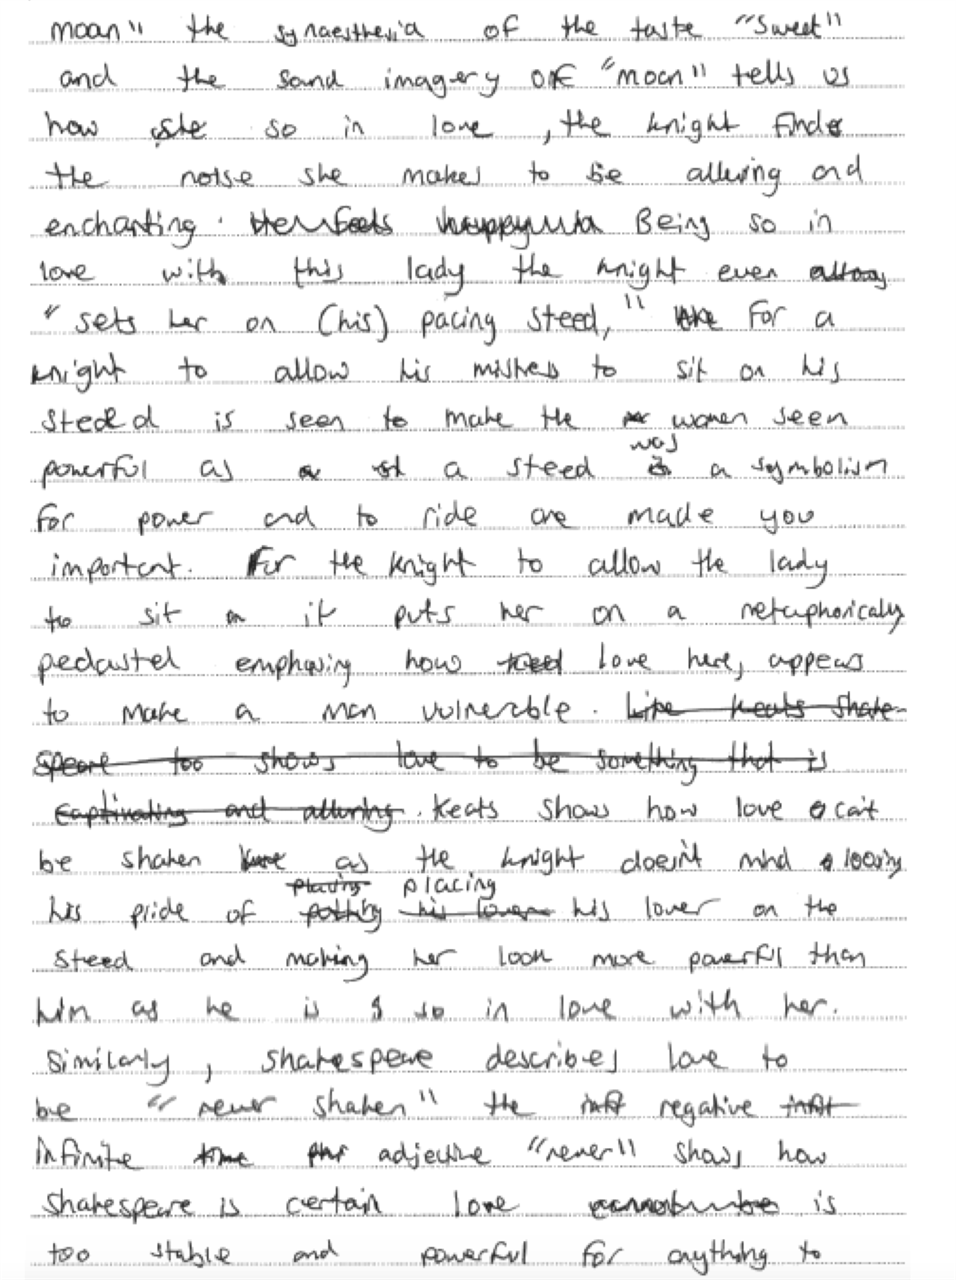 moan" the synaesthesia of the taste "Sweet"
and the sound imagery of "moan" tells us
how she so in love, the knight finds
the noise she makes to be alluring and
enchanting. Her feels happy Being so in
love with this lady the knight even
"sets her on (his) pacing steed," the For a
knight to allow his mistress to sit on his
steed is seen to make the women seen
powerful as a a steed was a symbolism
for power and to ride one made you
important. For the knight to allow the lady
to sit on it puts her on a metaphorically
pedastel emphasing how love here, appears
to make a man vulnerable. Like Keats Shake-
speare too shows love to be something that is
captivating and alluring. Keats shows how love can't
be shaken as the knight doesn't mind loosing
placing placing
his pride of putting his lover his lover on the
steed and making her look more powerful than
him as he is so in love with her.
Similarly, Shakespeare describes love to
be "never shaken" the inf negative infit
infinite time adjective "never" shows how
Shakespeare is certain love cannot be is
too stable and powerful for anything to